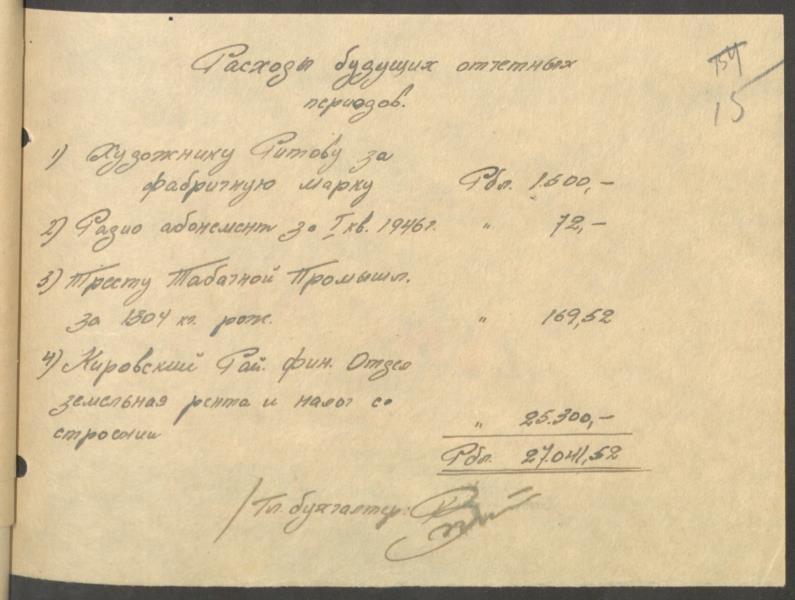 Расходы будущих отчетных
периодов.
154
15
1) Художнику Ритову за
фабричную марку Рбл. 1.500,-
2) Радио абонемент за I кв. 1946 г. " 72,-
3) Тресту Табачной Промышл.
за 1304 кг. рож. " 169,52
4) Кировский Рай. фин. Отдел
земельная рента и налог со
строений " 25.300,-
Рбл. 27.041,52
Гл. бухгалтер: